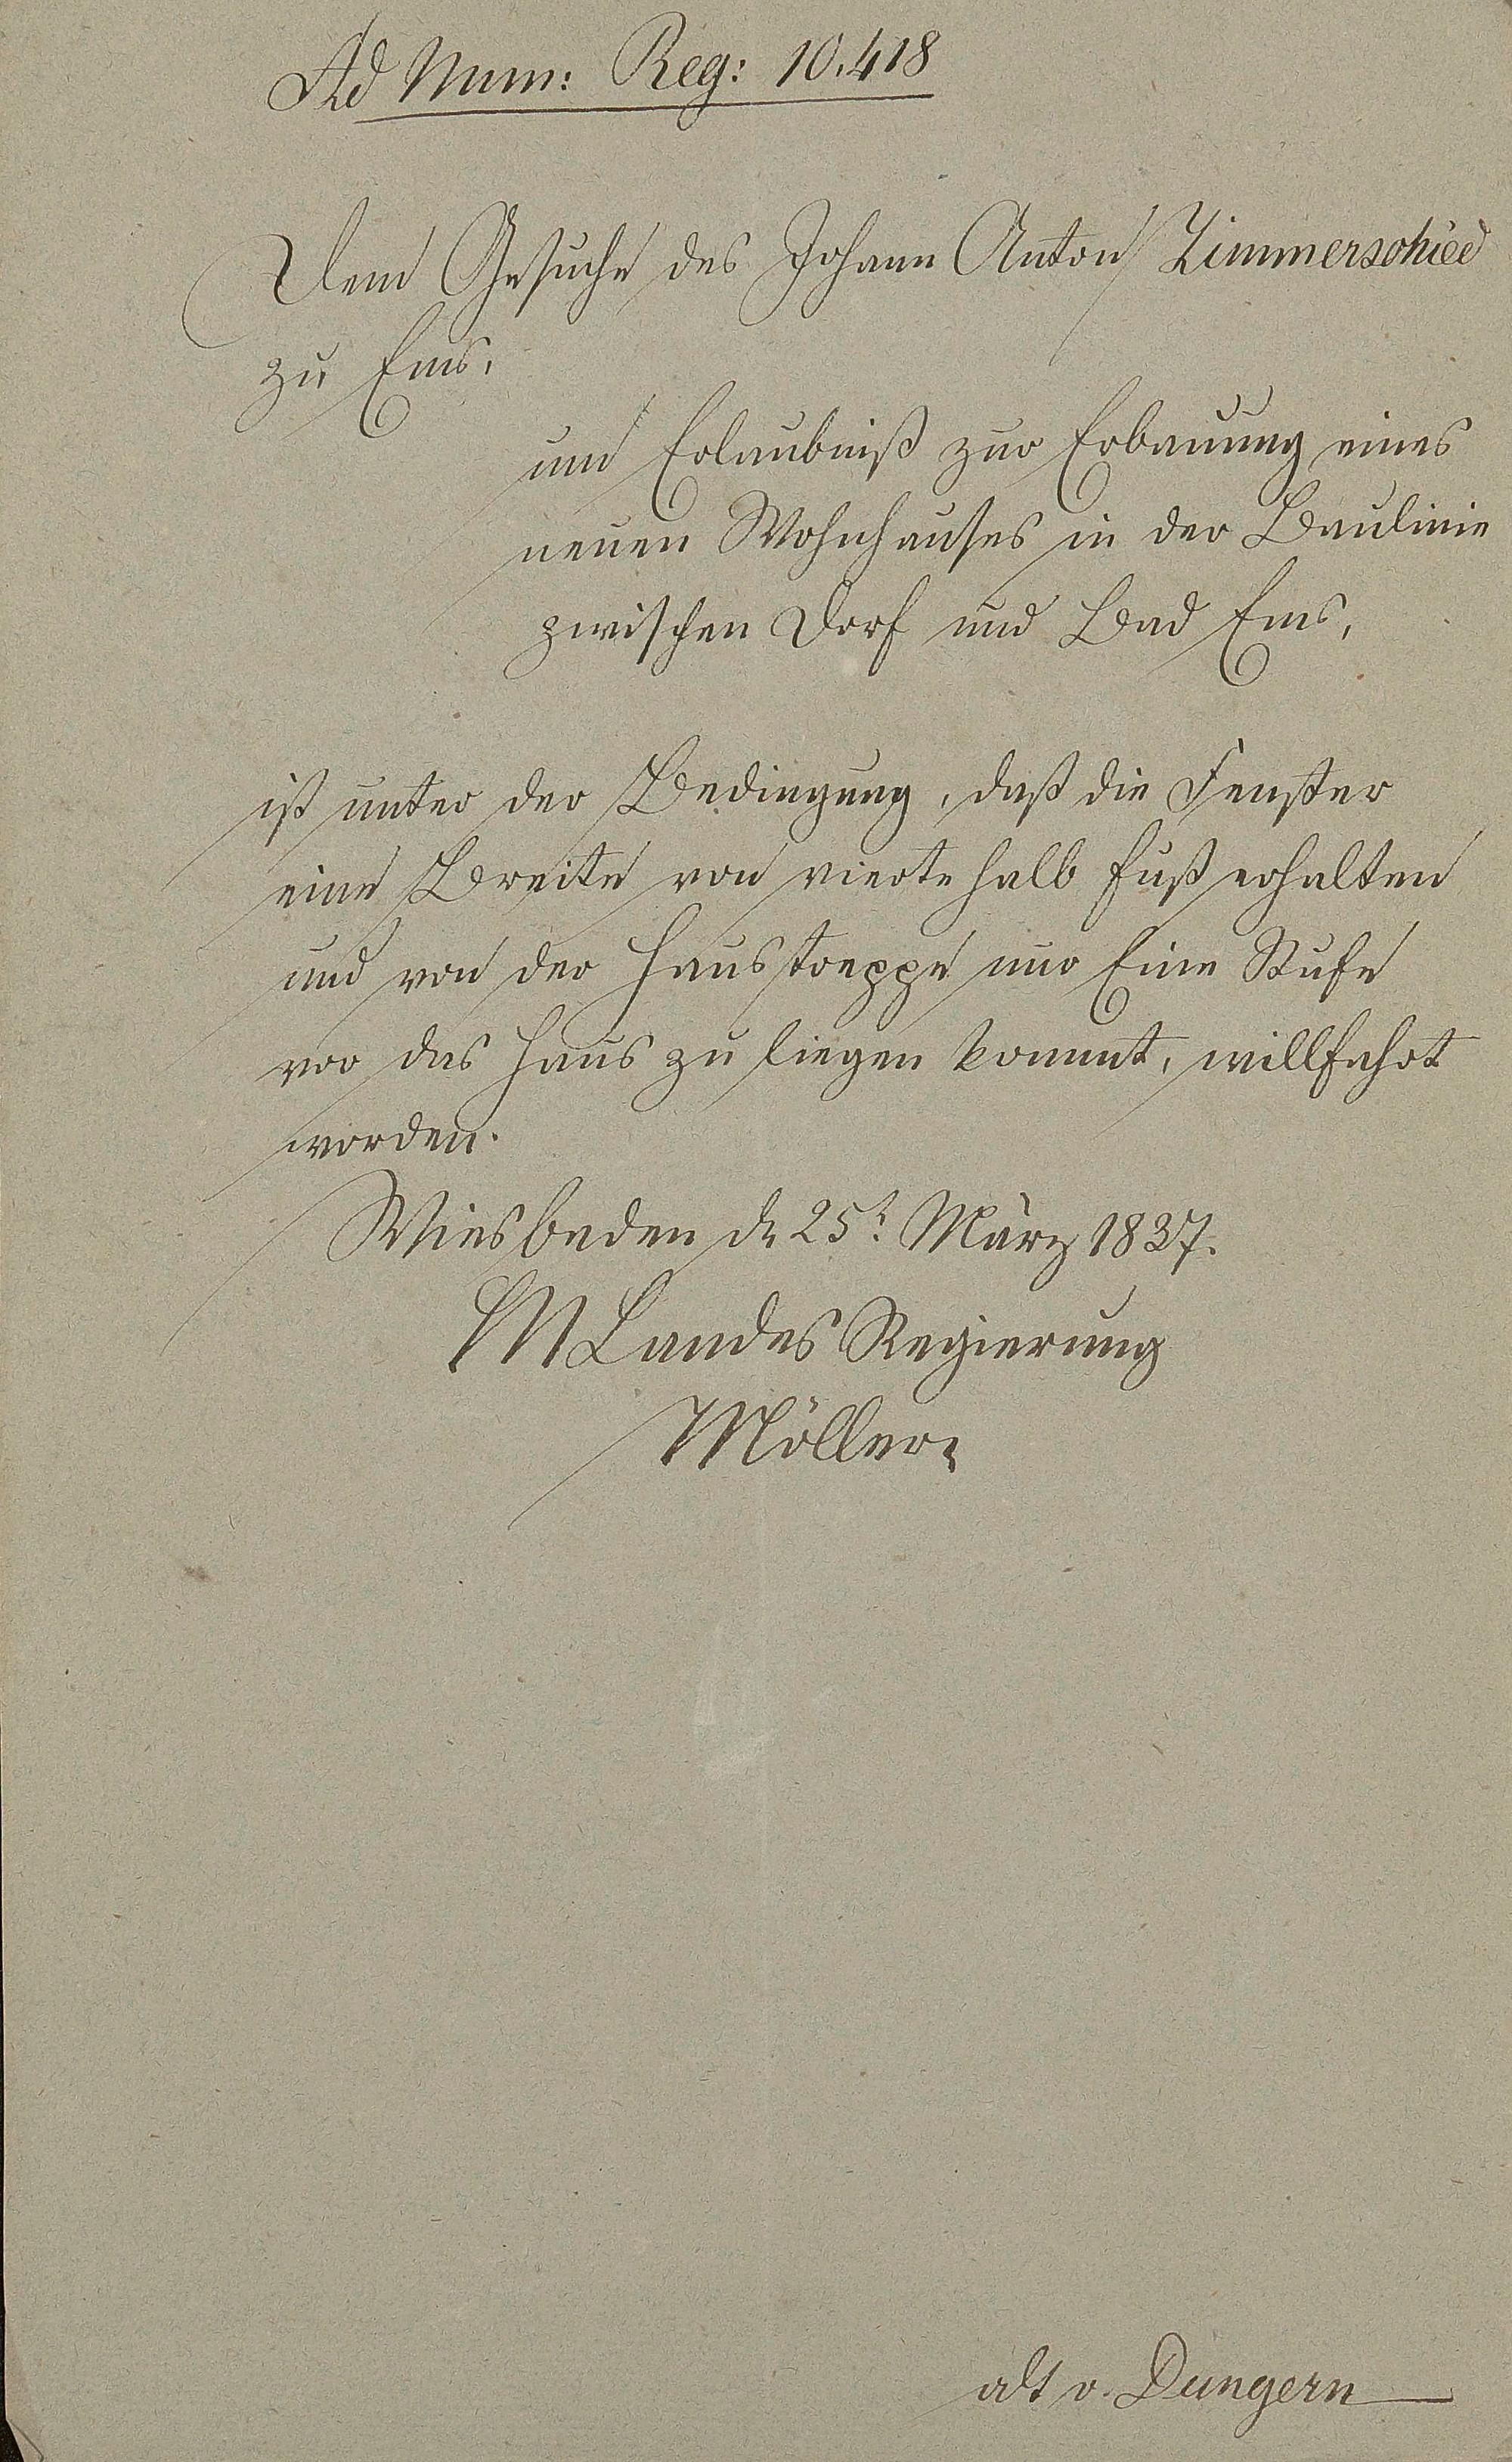 Ad Num: Reg: 10.418
Dem Gesuche des Johann Anton Zimmerschied
zu Ems,
um Erlaubniß zur Erbauung eines
neuen Wohnhauses in der Baulinie
zwischen Dorf und Bad Ems,
ist unter der Bedingung, daß die Fenster
eine Breite von viertehalb Fuß erhalten
und von der Haustreppe nur Eine Stufe
vor das Haus zu liegen kommt, willfahrt
worden.
Wiesbaden d. 25t. März 1837.
Landes Regierung
Möller
v. Dungern